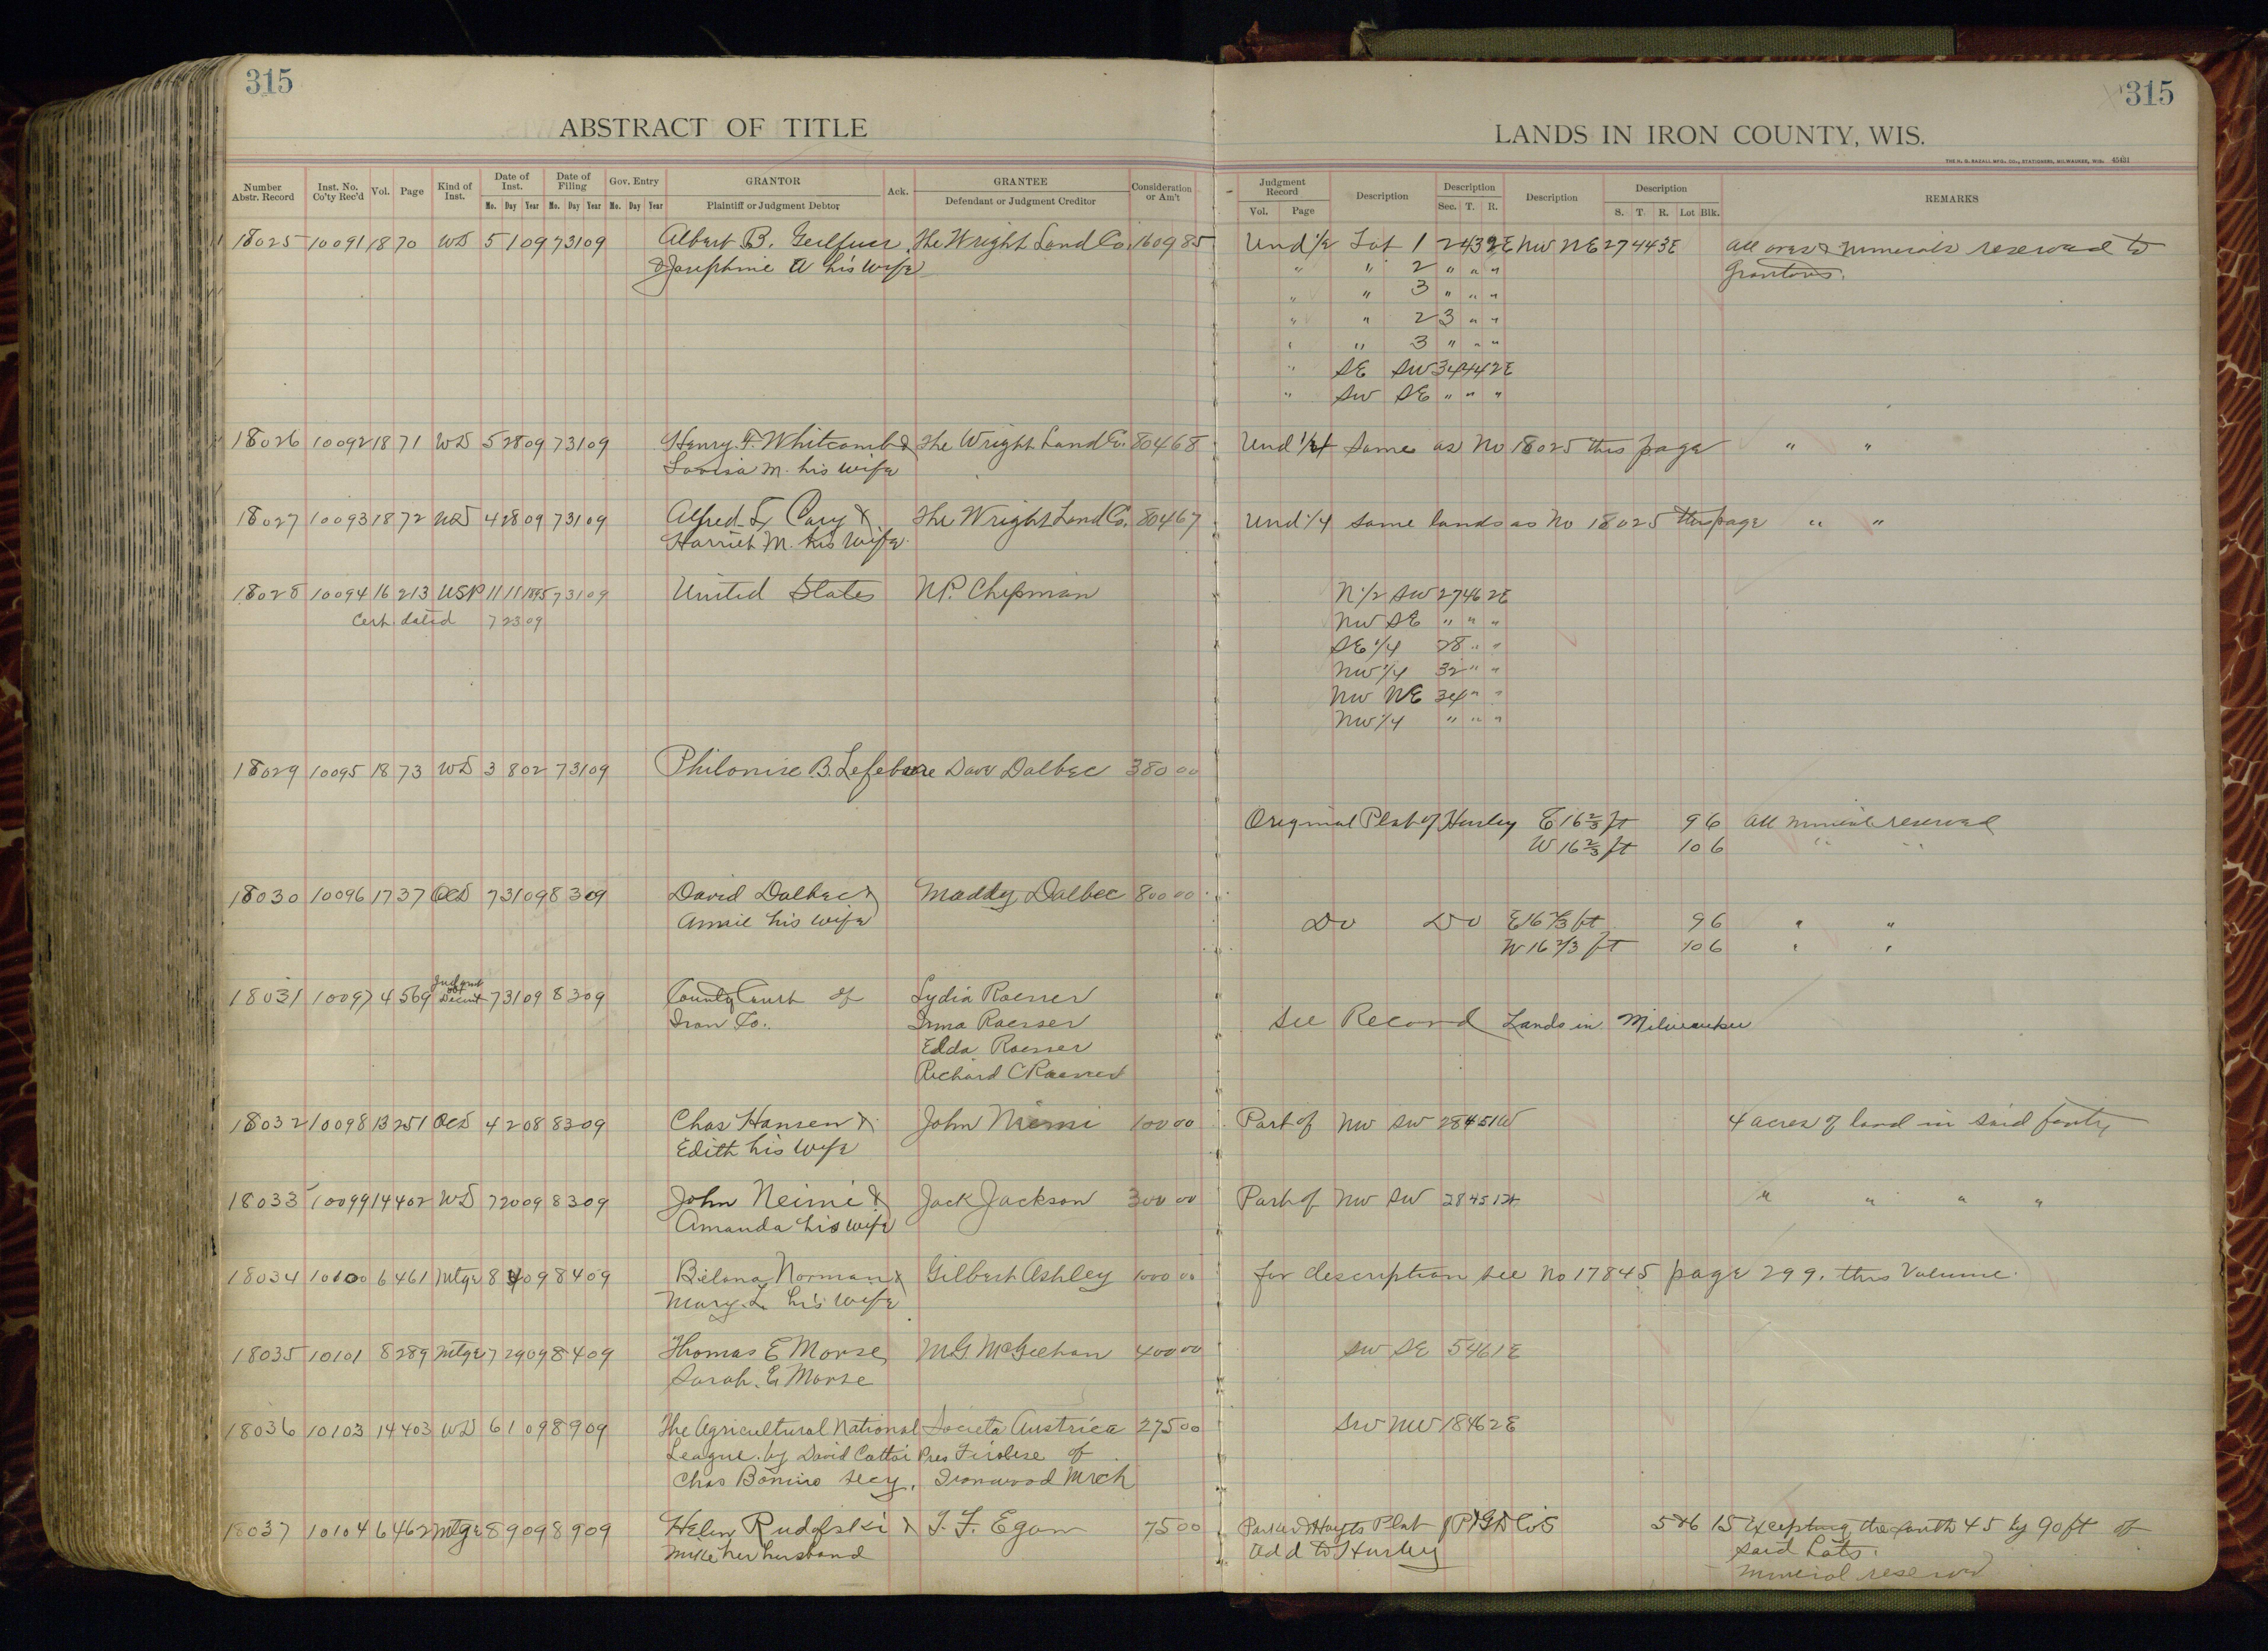 315
315
ABSTRACT OF TITLE
LANDS IN IRON COUNTY, WIS.
THE H. G. RAZALL MFG. CO., STATIONERS, MILWAUKEE, WIS. 45431
Number Abstr. Record | Inst. No. Co'ty Rec'd | Vol. | Page | Kind of Inst. | Date of Inst. Mo. Day Year | Date of Filing Mo. Day Year | Gov. Entry Mo. Day Year | GRANTOR Plaintiff or Judgment Debtor | Ack. | GRANTEE Defendant or Judgment Creditor | Consideration or Am't | Judgment Record Vol. Page | Description | Description Sec. T. R. | Description | Description S. T. R. Lot Blk. | REMARKS
18025 10091 18 70 WD 5 1 09 7 31 09 Albert B. The Wright Land Co. 1609 85 Und 1/2 Lot 1 2 43 2E NW NE 27 44 3E All ores & minerals reserved to
& Josephine A his wife " " 2 " " " Grantors.
" " 3 " " "
" " 2 3 " "
" " 3 " " "
" SE SW 34 44 2E
" SW SE " " "
18026 10092 18 71 WD 5 28 09 7 31 09 Henry F. Whitcomb & The Wright Land Co. 804 68 Und 1/4 Same as No 18025 this page " "
Lovisa M. his wife
18027 10093 18 72 WD 4 28 09 7 31 09 Alfred L Cary & The Wright Land Co. 804 67 Und 1/4 same lands as No 18025 this page " "
Harriet M. his wife
18028 10094 16 213 USP 11 11 1895 7 31 09 United States N.P. Chipman N 1/2 SW 27 46 2E
Cert. dated 7 23 09 NW SE " " "
SE 1/4 28 " "
NW 1/4 32 " "
NW NE 34 " "
NW 1/4 " " "
18029 10095 18 73 WD 3 8 02 7 31 09 Philonise B. Lefebvre Dave Dalbec 380 00
Original Plat of Hurley E 16 2/3 ft 9 6 All mineral reserved
W 16 2/3 ft 10 6 " "
18030 10096 17 37 QCD 7 31 09 8 3 09 David Dalbec & Maddy Dalbec 800 00
Annie his wife Do Do E 16 2/3 ft 9 6 " "
W 16 2/3 ft 10 6 " "
18031 10097 4 569 7 31 09 8 3 09 County Court of Lydia Roesser
Iron Co. Irma Roesser See Record Lands in Milwaukee
Edda Roesser
Richard C Roesser
18032 10098 13 251 QCD 4 2 08 8 3 09 Chas Hansen & John Niemi 100 00 Part of NW SW 28 45 1W 4 acres of land in said forty
Edith his wife
18033 10099 14 402 WD 7 20 09 8 3 09 John Neimi & Jack Jackson 300 00 Part of NW SW 28 45 1 " " " "
Amanda his wife
18034 10100 6 461 Mtge 8 4 09 8 4 09 Norman & Gilbert Ashley 1000 00 for description see No 17845 page 299. this Volume.
Mary L. his wife
18035 10101 8 289 Mtge 7 29 09 8 4 09 Thomas E Morse MG McGeehan 400 00 SW SE 5 46 1E
Sarah E Morse
18036 10103 14 403 WD 6 1 09 8 9 09 The Agricultural National Societa Austrica 275 00 SW NW 18 46 2E
League by David Cattoi Pres Tirolese of
Chas Bonino secy. Ironwood Mich
18037 10104 6 462 Mtge 8 9 09 8 9 09 Helen Rudolski & T. F. Egan 75 00 Parker & Hoyts Plat 5&6 15 Excepting the south 45 by 90 ft of
Mike her husband Add to Hurley said Lots.
Mineral reserved